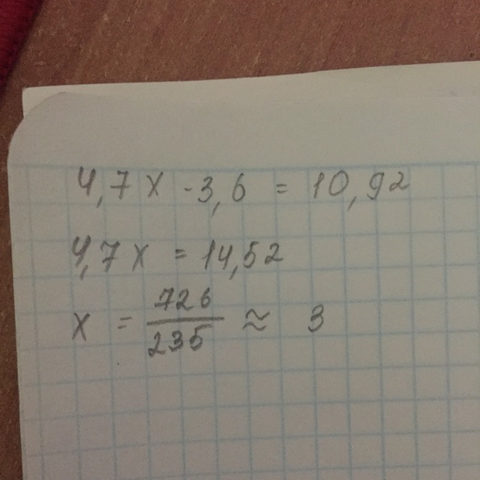 4,7x - 3,6 = 10,92
4,7x = 14,52
x = 726/235 ≈ 3